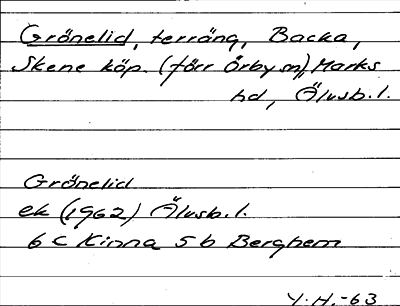 Grönelid, terräng, Backa,
Skene köp. (förr Örby sn), Marks
hd, Älvsb. l.
Grönelid
ek (1962) Älvsb. l.
6 C Kinna 5 b Berghem
Y. H. -63